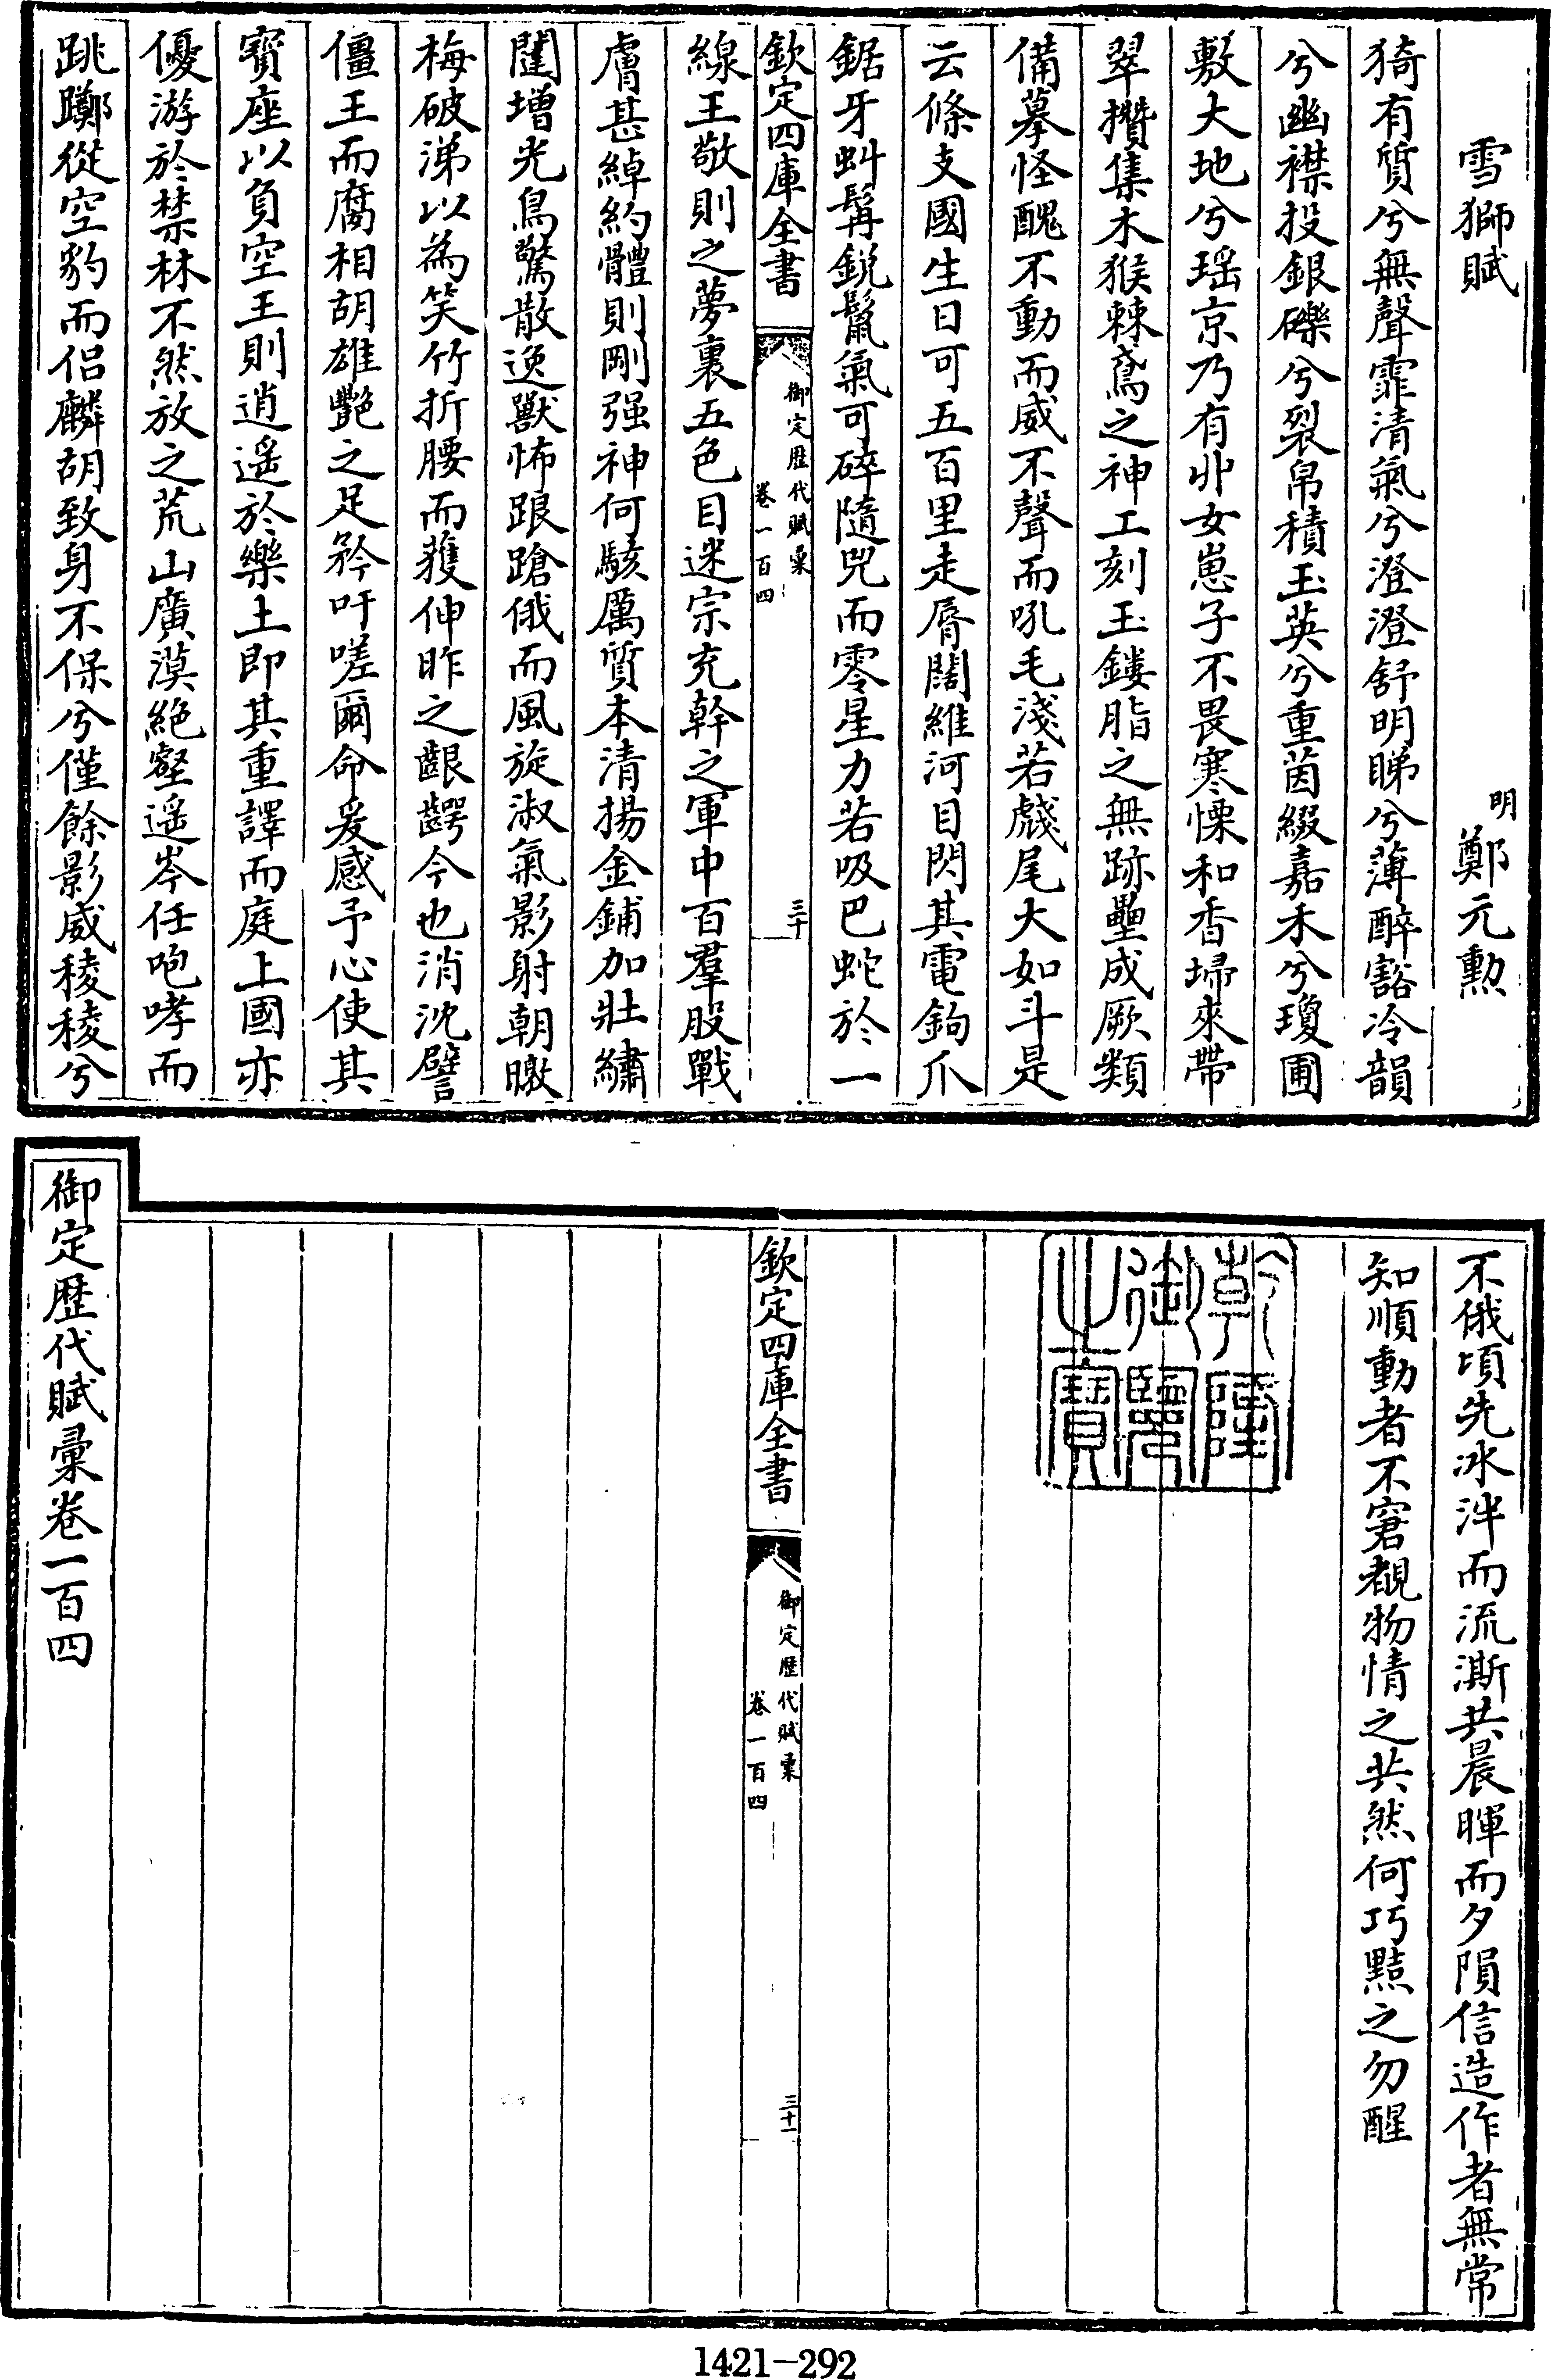 雪獅賦
明鄭元勲
猗有質兮無聲霏清氣兮澄澄舒明睇兮薄醉豁冷韻
兮幽襟投銀礫兮裂帛積玉英兮重茵綴嘉禾兮瓊圃
敷大地兮瑶京乃有丱女崽子不畏寒慄和香埽來帶
翠攢集木猴棘鳶之神工刻玉鏤脂之無跡壘成厥類
備摹怪醜不動而威不聲而吼毛淺若虥尾大如斗是
云條支國生日可五百里走脣闊維河目閃其電鉤爪
鋸牙虯髯鋭鬣氣可碎隨兕而零星力若吸巴蛇於一
欽定四庫全書
御定歴代賦彙
卷一百四
三十
線王敬則之夢裏五色目迷宗充幹之軍中百羣股戰
膚甚綽約體則剛强神何駭厲質本清揚金鋪加壯繡
闥增光鳥驚散逸獸怖踉蹌俄而風旋淑氣影射朝暾
梅破涕以為笑竹折腰而獲伸昨之齦齶今也消沈譬
僵王而腐相胡雄艷之足矜吁嗟爾命爰感予心使其
寳座以負空王則逍遥於樂土即其重譯而庭上國亦
優游於禁林不然放之荒山廣漠絶壑遥岑任咆哮而
跳躑從空豹而侣麟胡致身不保兮僅餘影威稜稜兮
不俄頃先冰泮而流澌共晨暉而夕隕信造作者無常
知順動者不窘覩物情之共然何巧黠之勿醒
乾隆御覽之寶
欽定四庫全書
御定歴代賦彙
卷一百四
三十一
御定歴代賦彙卷一百四
1421-292